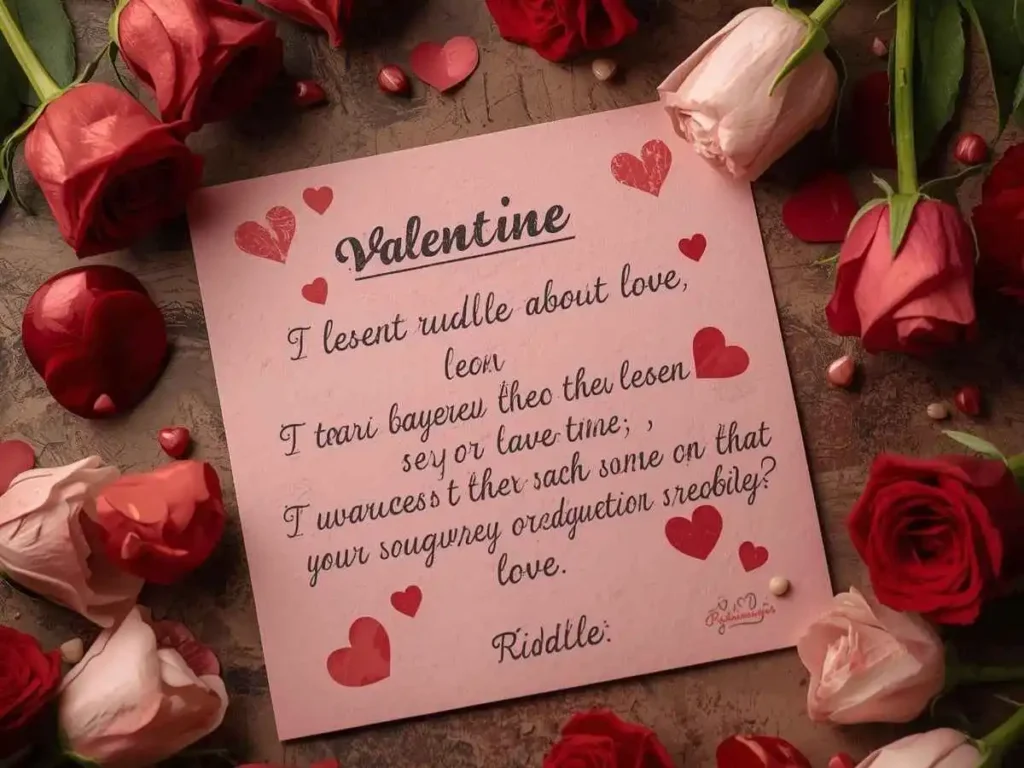 Valentine
I lesent rudlle about love,
leon
I teari bayereu theo theu lesen
sey or lave-time; ,
I uvarucess t ther sach some on that
your souguvrey oredguetion sreobiley?
love.
Riddle: